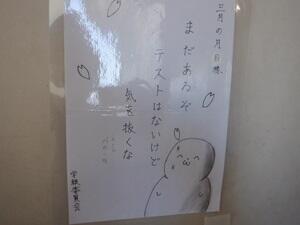 三月の月目標、
まだあるぞ
テストはないけど
気を抜くな
学級委員会